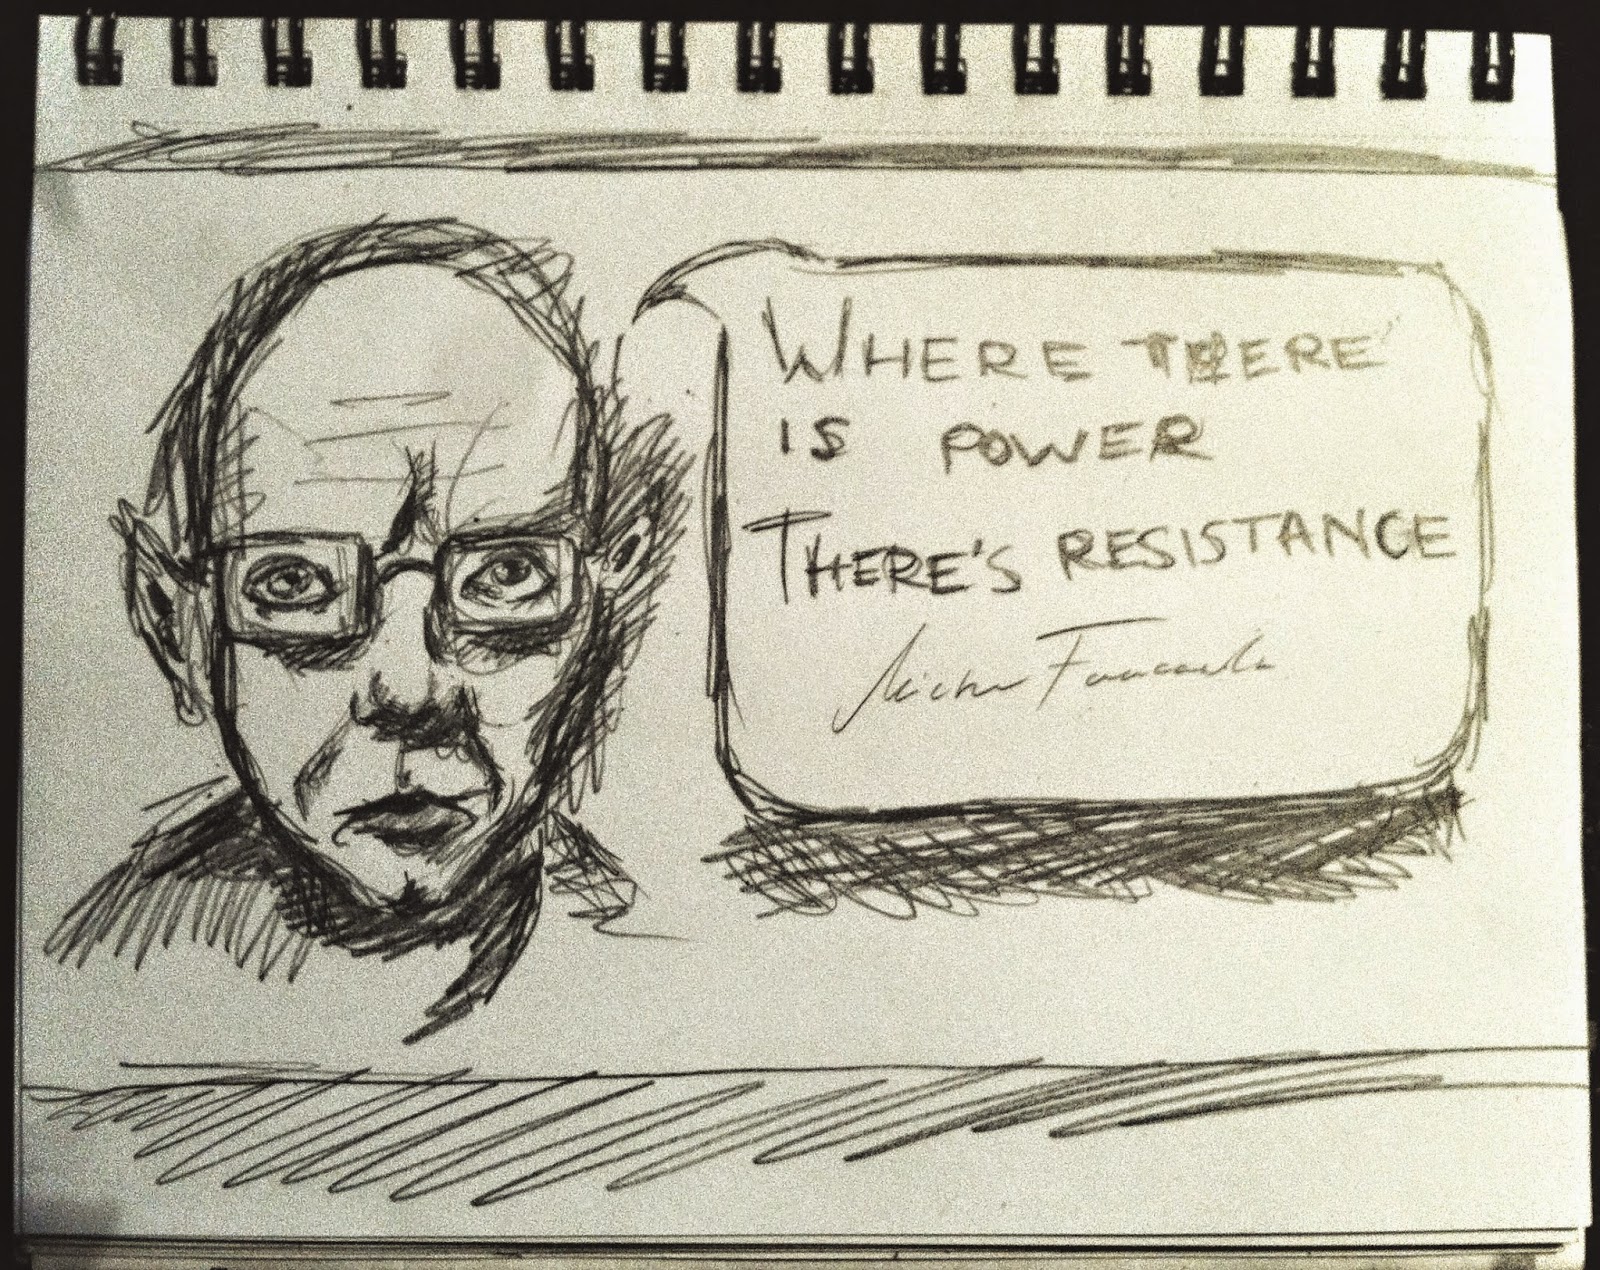 WHERE THERE
IS POWER
THERE'S RESISTANCE
Michel Foucault